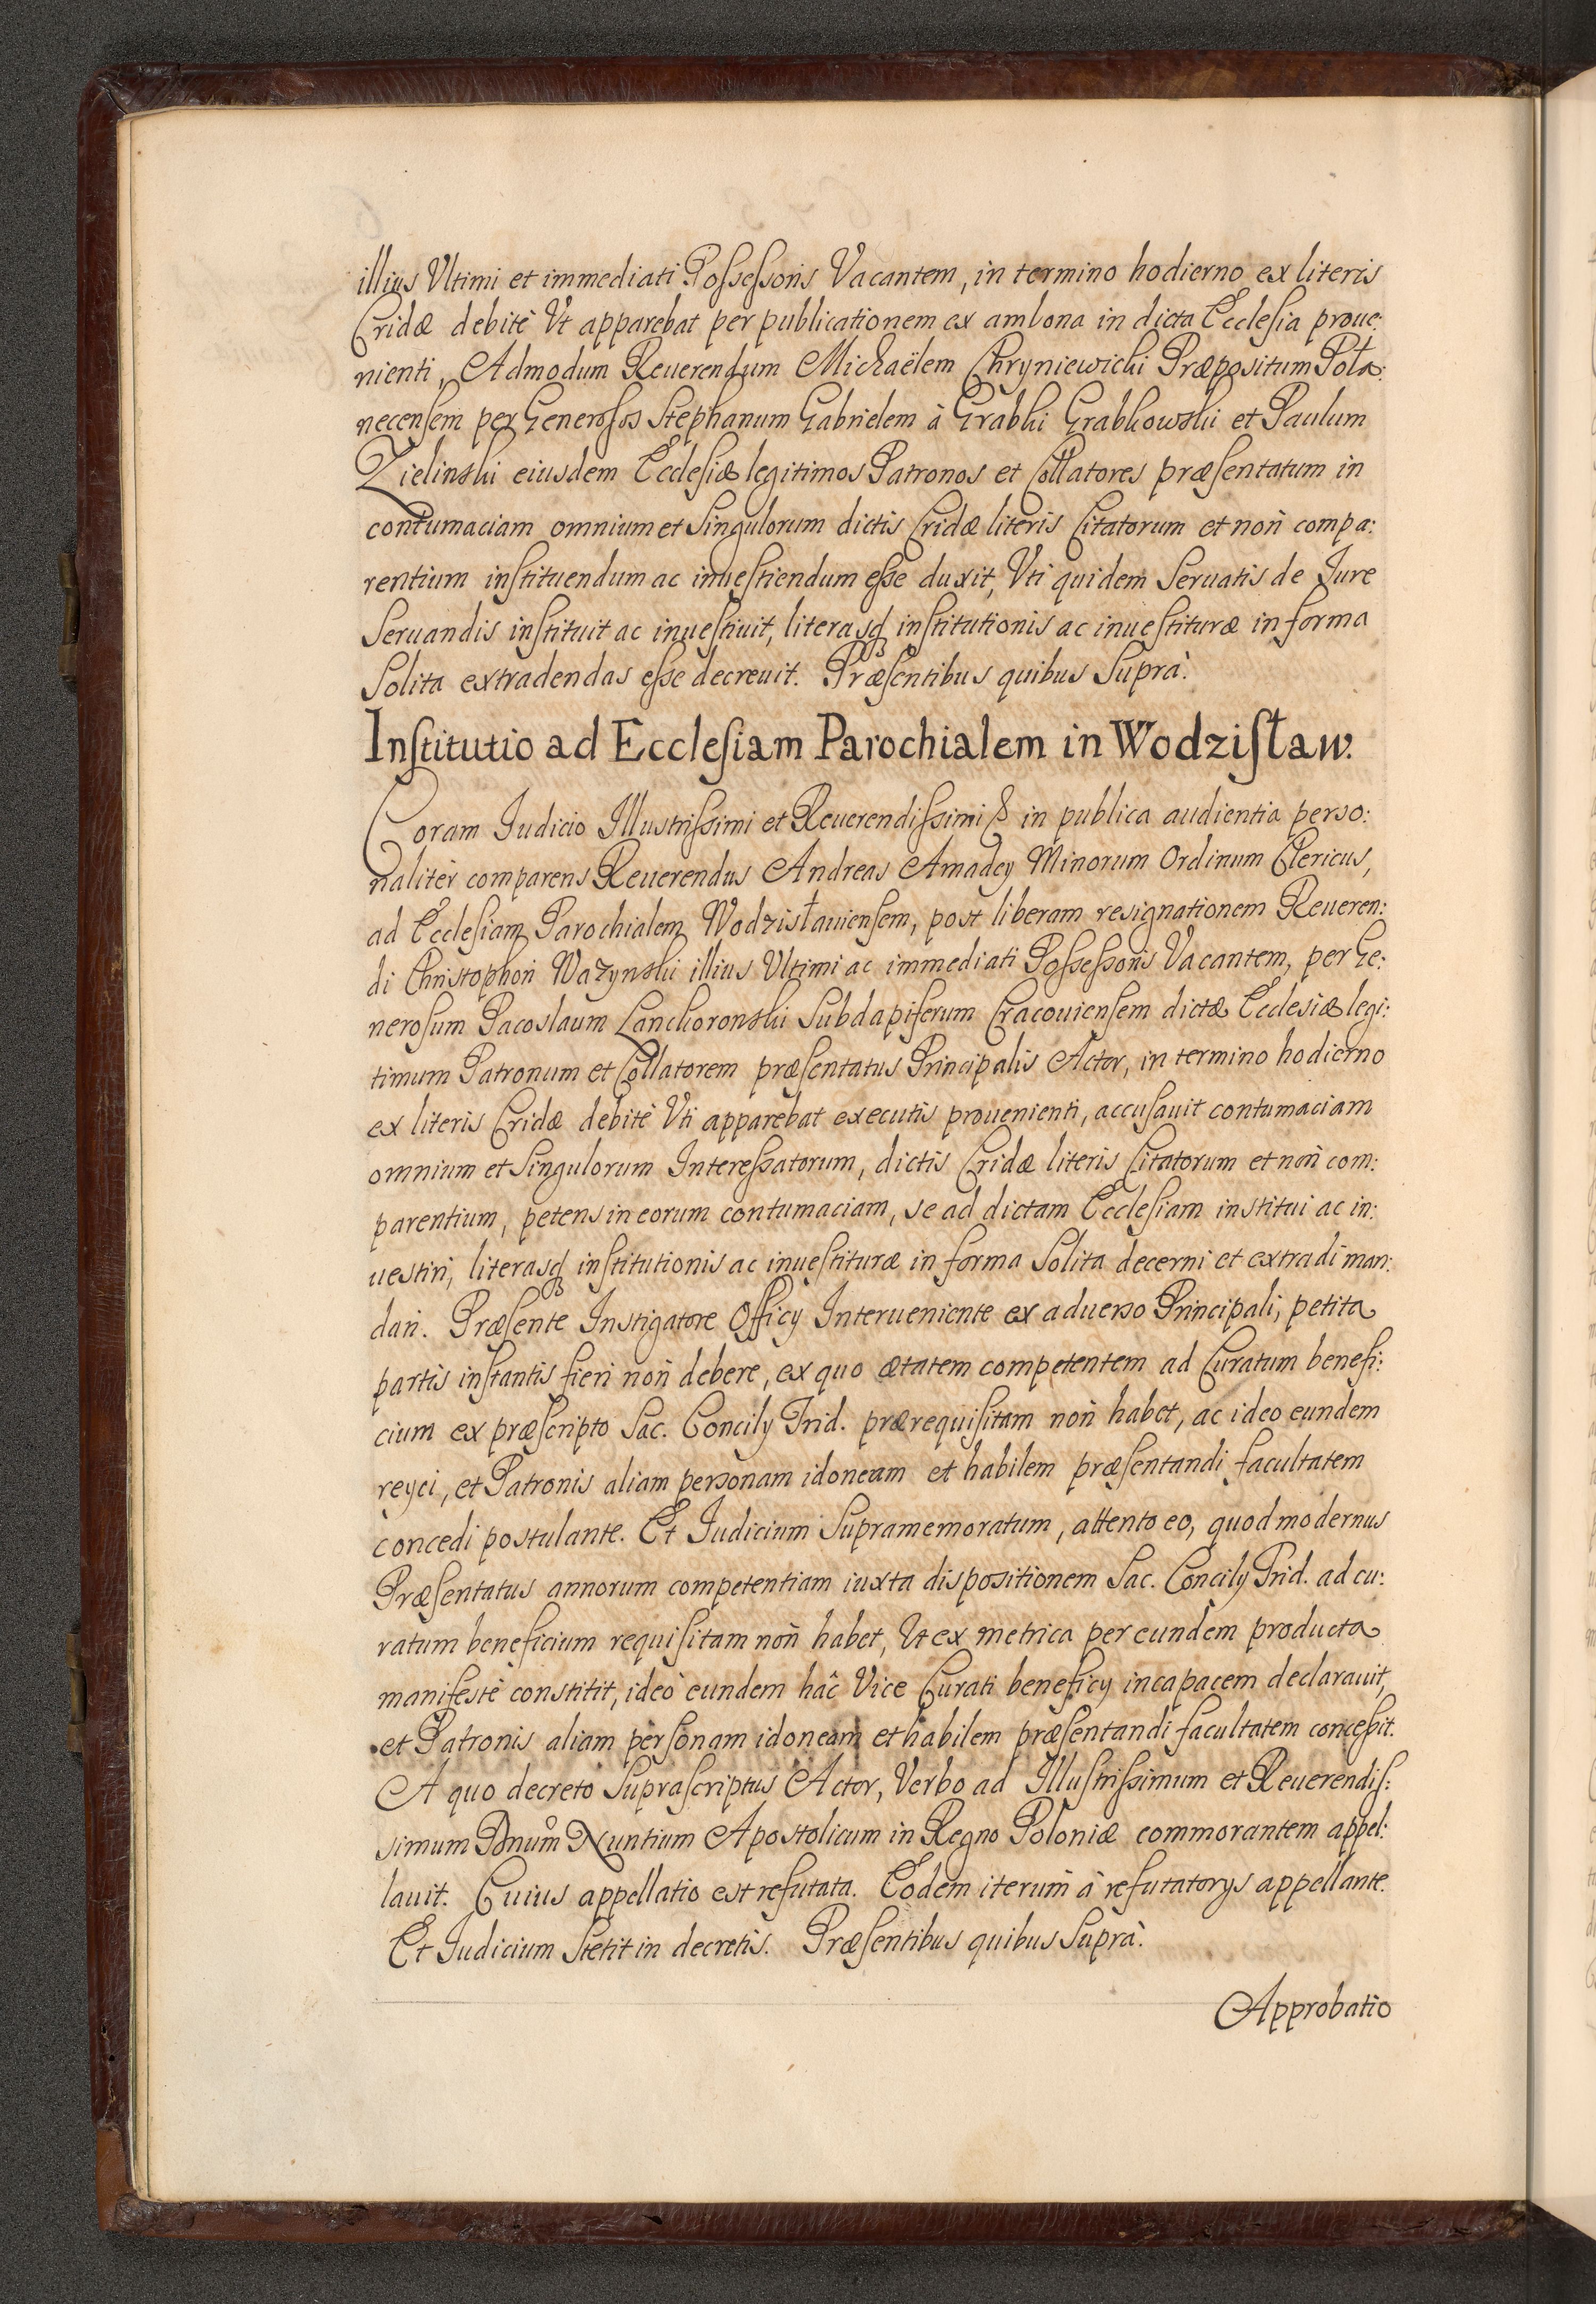 illius Ultimi et immediati Possessoris Vacantem, in termino hodierno ex literis
Cridæ debitè Vt apparebat per publicationem ex ambona in dicta Ecclesia proue:
nienti, Admodum Reuerendum Michaëlem Chryniewicki Præpositum Poła:
necensem per Generosos Stephanum Gabrielem à Grabki Grabkowski et Paulum
Zielinski eiusdem Ecclesiæ legitimos Patronos et Collatores præsentatum in
contumaciam omnium et Singulorum dictis Cridæ literis Citatorum et non compa:
rentium instituendum ac inuestiendum esse duxit, Vti quidem Seruatis de Jure
Seruandis instituit ac inuestiuit, literasq₃ institutionis ac inuestituræ in forma
Solita extradendas esse decreuit. Præsentibus quibus Suprà.
Institutio ad Ecclesiam Parochialem in Wodzisław.
Coram Judicio Illustrissimi et Reuerendissimi & in publica audientia perso:
nalitèr comparens Reuerendus Andreas Amadey Minorum Ordinum Clericus,
ad Ecclesiam Parochialem Wodzisławiensem, post liberam resignationem Reueren:
di Christophori Wazynski illius Ultimi ac immediati Possessoris Vacantem, per Ge:
nerosum Pacoslaum Lanckoronski Subdapiferum Cracouiensem dictæ Ecclesiæ legi:
timum Patronum et Collatorem præsentatus Principalis Actor, in termino hodierno
ex literis Cridæ debitè Vti apparebat executis prouenienti, accusauit contumaciam
omnium et Singulorum Interessatorum, dictis Cridæ literis Citatorum et non com:
parentium, petens in eorum contumaciam, se ad dictam Ecclesiam institui ac in:
uestiri, literasq₃ institutionis ac inuestituræ in forma Solita decerni et extradi man:
dari. Præsente Instigatore Officy Interueniente ex aduerso Principali, petita
partis instantis fieri non debere, ex quo ætatem competentem ad Curatum benefi:
cium ex præscripto Sac. Concily Trid. prærequisitam non habet, ac ideo eundem
reyci, et Patronis aliam personam idoneam et habilem præsentandi facultatem
concedi postulante. Et Judicium Supramemoratum, attento eo, quod modernus
Præsentatus annorum competentiam iuxta dispositionem Sac. Concily Trid. ad cu:
ratum beneficium requisitam non habet, Vt ex metrica per eundem producta
manifestè constitit, ideò eundem hac Vice Curati beneficy incapacem declarauit,
et Patronis aliam personam idoneam et habilem præsentandi facultatem concessit.
A quo decreto Suprascriptus Actor, Verbo ad Illustrissimum et Reuerendis:
simum Dnum Nuntium Apostolicum in Regno Poloniæ commorantem appel:
lauit. Cuius appellatio est refutata. Eodem iterum à refutatorys appellante.
Et Judicium Stetit in decretis. Præsentibus quibus Suprà.
Approbatio